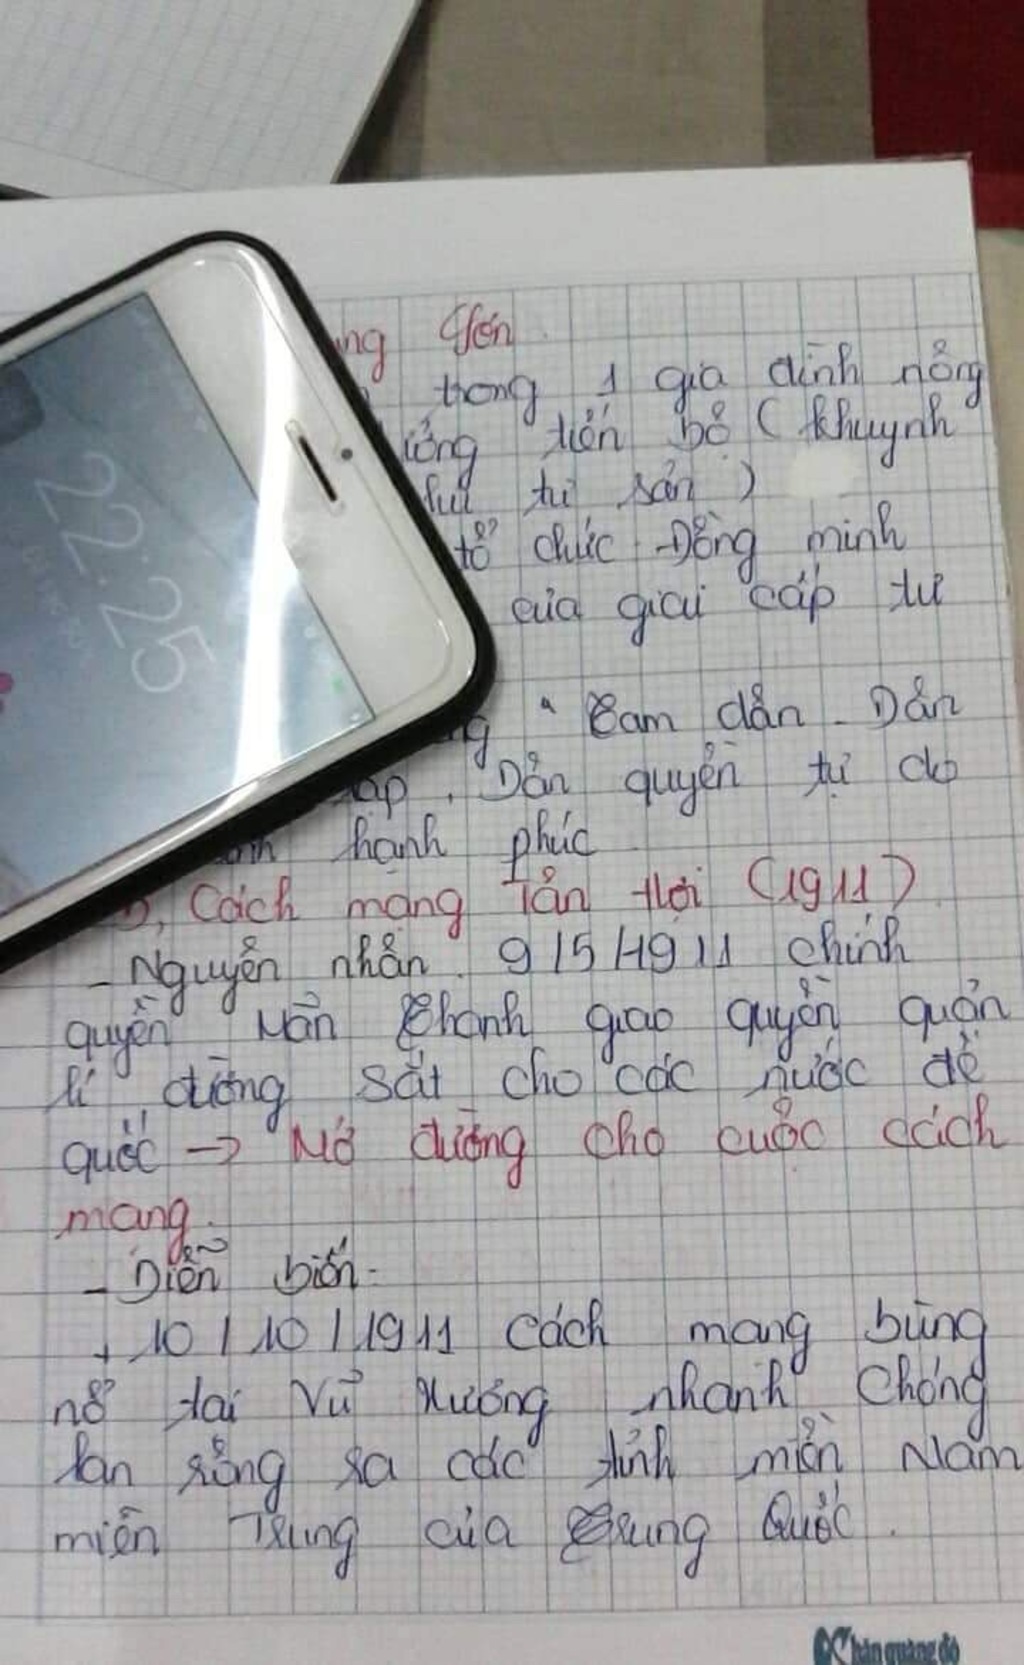 22:25
ng Sơn.
trong 1 gia đình nông
tiến bộ ( khuynh
tư sản )
tổ chức Đồng minh
của giai cấp tư
"Tam dân - Dân
. Dân quyền tự do
hạnh phúc
b, Cách mạng Tân Hợi (1911)
- Nguyên nhân. 9/5/1911 chính
quyền Mãn Thanh giao quyền quản
lí đường sắt cho các nước đế
quốc → Mở đường cho cuộc cách
mạng.
- Diễn biến.
+ 10/10/1911 cách mạng bùng
nổ tại Vũ Xương nhanh chóng
lan rộng ra các tỉnh miền Nam
miền Trung của Trung Quốc.